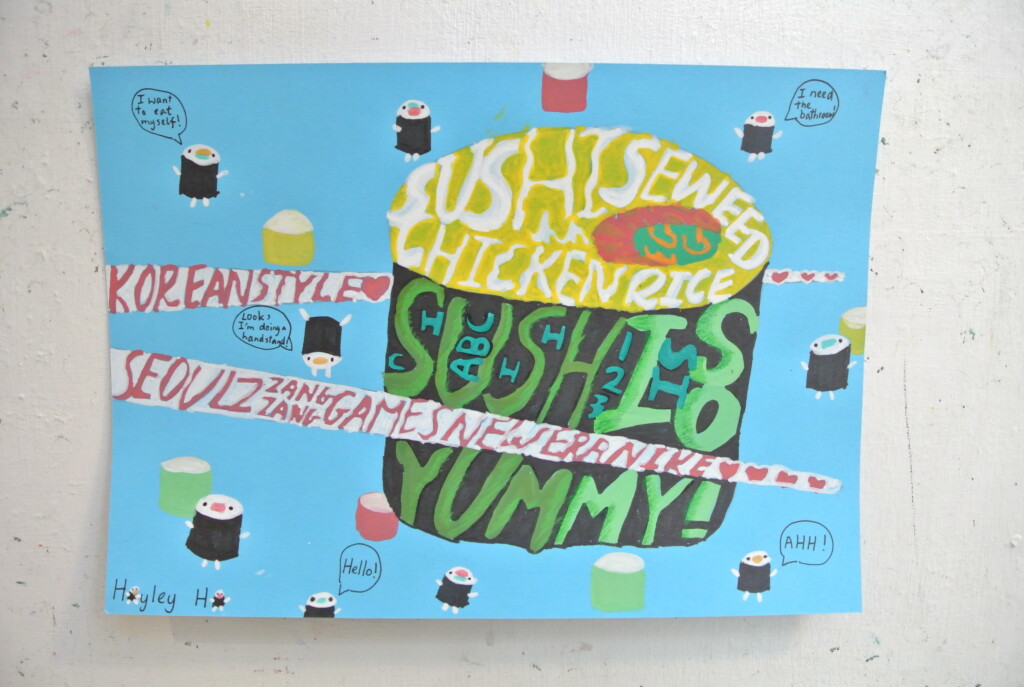 I want
to eat
myself!
I need
the
bathroom!
SUSHI SEWEED
CHICKEN RICE
KOREANSTYLE
Look,
I'm doing a
handstand!
SUSHI IS
SO
H
ABC
H
I
C
I
1
2
IS
SEOULZ
ZANG
ZANG
GAMESNEWERANIKE
YUMMY!
Hello!
AHH!
Hayley H